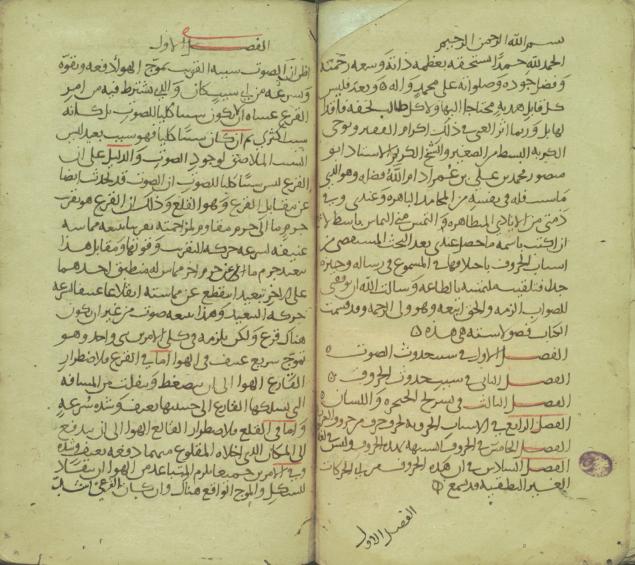 بسم الله الرحمن الرحيم
الحمد لله حمدا يستحقه بعظمة ذاته وسعة رحمته
وفضل جوده وصلواته على محمد واله وبعد فليس
كل قابل هدية محتاجا اليها ولا كل طالب تحفة فاقدا
لها بل وربما اثر الغنى في ذلك اكرام الفقير وتوخى
الكبير به البسط من الصغير والشيخ الكريم الاستاد ابو
منصور محمد بن علي بن عمر ادام الله فضله وهو الذي
ما سلف له في نفسه من المحامد الباهرة وعندي وفي
ذمتي من الايادي المتظاهرة التمس مني التماس باسط لا
ان اكتب باسمه ما حصل عندي بعد البحث المستقصى من
اسباب الحروف باختلافها في المسموع في رسالة وجيزة
جدا فتلقيت ملتمسه بالطاعة وسالت الله ان يوفقني
للصواب الزمه والحق اتبعه وهو ولي الرحمة وقد قسمت
الكتاب فصولا ستة هي هذه
الفصل الاول في سبب حدوث الصوت
الفصل الثاني في سبب حدوث الحروف
الفصل الثالث في تشريح الحنجرة واللسان
الفصل الرابع في الاسباب الجزوية لحرف حرف من حروف العرب
الفصل الخامس في الحروف الشبيهة بهذه الحروف وليس في لغة
الفصل السادس في ان هذه الحروف من اي الحركات
الغير النطقية قد تسمع
الفصل الاول
الفصل الاول
اظن ان الصوت سببه القريب تموج الهوا دفعة وبقوة
وبسرعة من اي سبب كان والذي يشترط فيه من امر
القرع عساه ان لا يكون سببا كليا للصوت بل كانه
سبب اكثري ثم ان كان سببا كليا فهو سبب بعيد ليس
السبب الملاصق لوجود الصوت والدليل على ان
القرع ليس سببا كليا للصوت ان الصوت قد يحدث ايضا
عن مقابل القرع وهو القلع وذلك ان القرع هو تقريب
جرم ما الى جرم مقاوم لمزاحمته تقريبا تتبعه مماسة
عنيفة لسرعة حركة التقريب وقوتها ومقابل هذا
تبعيد جرم ما عن جرم اخر مماس له منطبق احدهما
على الاخر تبعيدا ينقطع عن مماسته انقلاعا عنيفا لسرعة
حركة التبعيد وهذا يتبعه صوت من غير ان يكون
هناك قرع ولكن يلزمه في كلي الامرين شي واحد وهو
تموج سريع عنيف في الهوا اما في القرع فلاضطرار
القارع الهوا الى ان ينضغط وينفلت من المسافة
التي يسلكها القارع الى جنبتيها بعنف وشدة سرعة
واما في القلع فلاضطرار القالع الهوا الى ان يندفع
الى المكان الذي اخلاه المقلوع منهما دفعة بعنف وشدة
وفي الامرين جميعا يلزم المتباعد من الهوا ان ينقاد
للشكل والموج الواقع هناك وان كان القرعي اشد